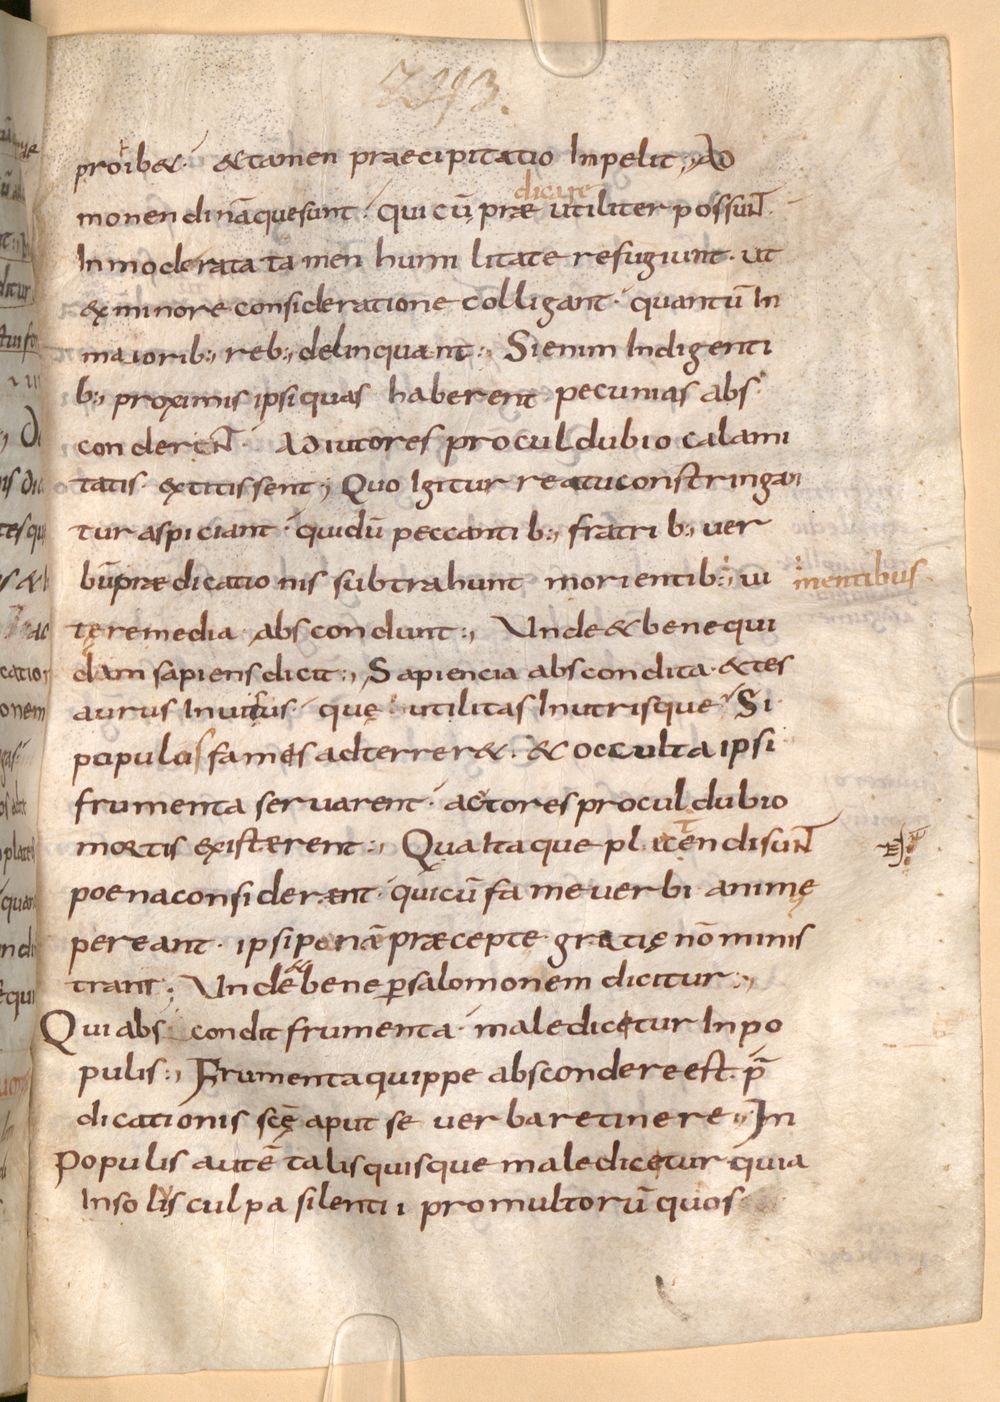 proib&· &tamen praecipitatio Inpelit ,, Ad
dicare
monendi nāque sunt· qui cū prae utiliter possunt·
Inmoderata tamen humilitate refugiunt· ut
ex minore consideratione colligant· quantū In
maiorib:, reb:, delinquant:, Si enim Indigenti
b:, proximis ipsi quas haberent pecunias abs
conderent· Adiutores procul dubio calami
tatis extitissent; Quo Igitur reatu constringan
tur aspiciant· qui dū peccantib:, fratrib:, ver
bū praedicationis subtrahunt morientib:, vi
mentibus
tę remedia abscondunt:, Unde & bene qui
dam sapiens dicit:, Sapiencia abscondita· & tes
aurus Inuisus· quę utilitas Inutrisque· Si
populos fames adterrer&· & occulta ipsi
frumenta servarent· actores procul dubio
mortis existerent:, Qua Itaque plectendi sunt
poena considerent· qui cū fame verbi animę
pereant· ipsi ponā praecepte gratię nō minis
trant; Unde & bene p salomonem dicitur:,
Qui abscondit frumenta· maledicetur In po
pulis:, Frumenta quippe abscondere est· p̄
dicationis scę aput se verba retinere,, In
Populis autē talis quisque maledicetur quia
In solis culpa silentii pro multorū quos